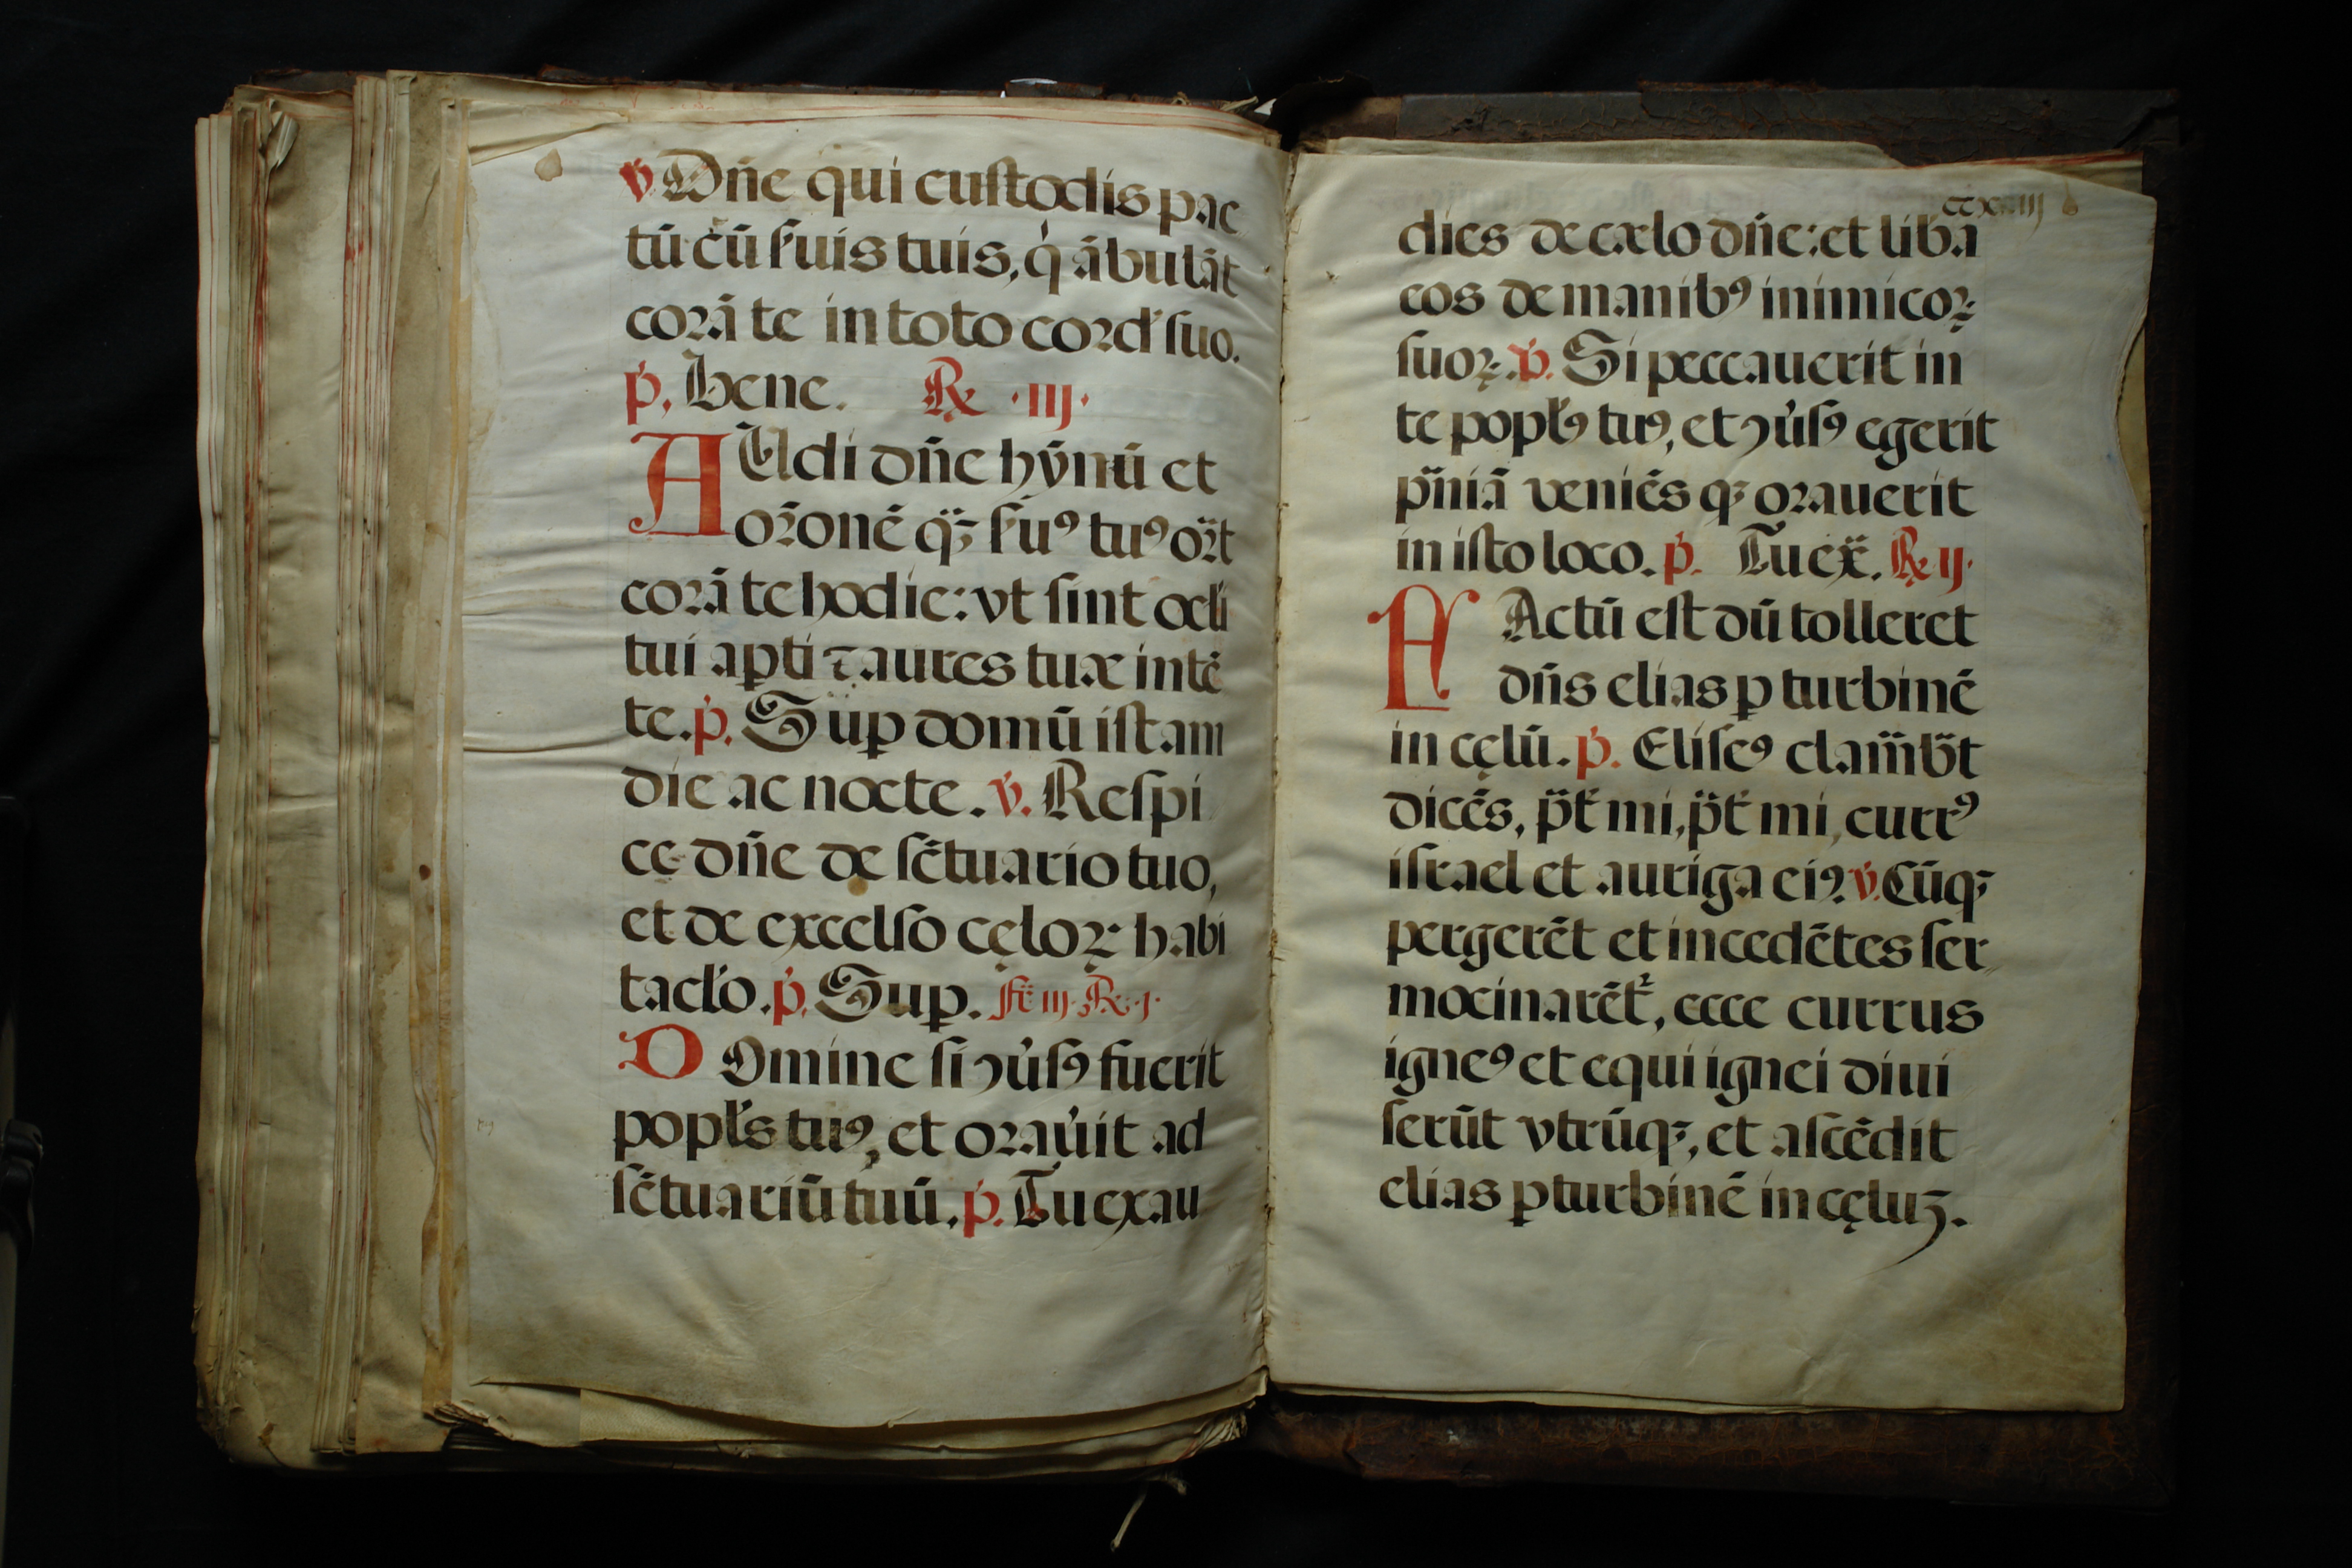 v̇ Dn̄e qui cuſtodis pac
tū cū ẜuis tuis, q̇ ābulāt
coꝛā te in toto coꝛd' ſuo.
ṗ. bene. ℟ ·iij·
AUdi dn̄e hẏmnū et
oꝛ̄onē q̈ꝫ ẜuꝰ tuꝰ oꝛ̄t
coꝛā te hodie: vt ſint ocl̄i
tui apti ⁊ aures tuæ intē
te. ṗ. Suꝑ domū iſtam
die ac nocte. v̇. Reſpi
ce dn̄e de ſc̄tuario tuo,
et de excelſo cęloꝝ habi
tacl'o. ṗ. Suꝑ. Fē iij. ℟. j.
DOmine ſi ꝯu̓ſꝰ fuerit
popl's tuꝰ, et oꝛau̓it ad
ſc̄tuariū tuū. ṗ. Tu exau
ccxxiiij
dies de cælo dn̄e: et lib̄a
eos de manibꝰ inimicoꝝ
ſuoꝝ. ṗ. Si peccauerit in
te popl'ꝰ tuꝰ, et ꝯu̓ſꝰ egerit
pn̄iā veniēs qꝫ oꝛauerit
in iſto loco. ṗ. Tu ex̄. ℟ ij·
FActū eſt dū tolleret
dn̄s elias ꝑ turbinē
in cęlū. ṗ. Eliſeꝰ clam̄b̄t
dicēs, p̄t̓ mi, p̄t̓ mi, currꝰ
iſrael et auriga eiꝰ. v̇. Cūqꝫ
pergerēt et incedētes ſer
mocinarēt᷑, ecce currus
igneꝰ et equi ignei diui
ſerūt vtrūqꝫ, et aſcēdit
elias ꝑ turbinē in cęluꝫ.